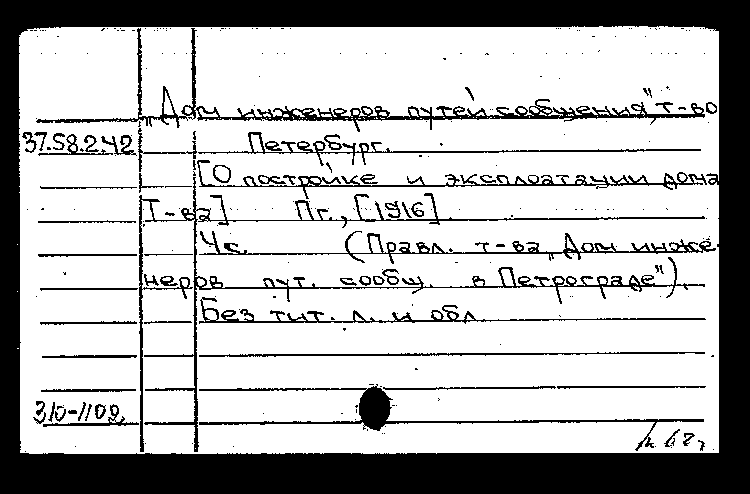 „Дом инженеров путей сообщения", т-во
37.58.2.42 Петербург.
[О постройке и эксплоатации дома
Т-ва] Пг., [1916].
4 с. (Правл. т-ва „Дом инже-
неров пут. сообщ. в Петрограде").
Без тит. л. и обл.
310-1109